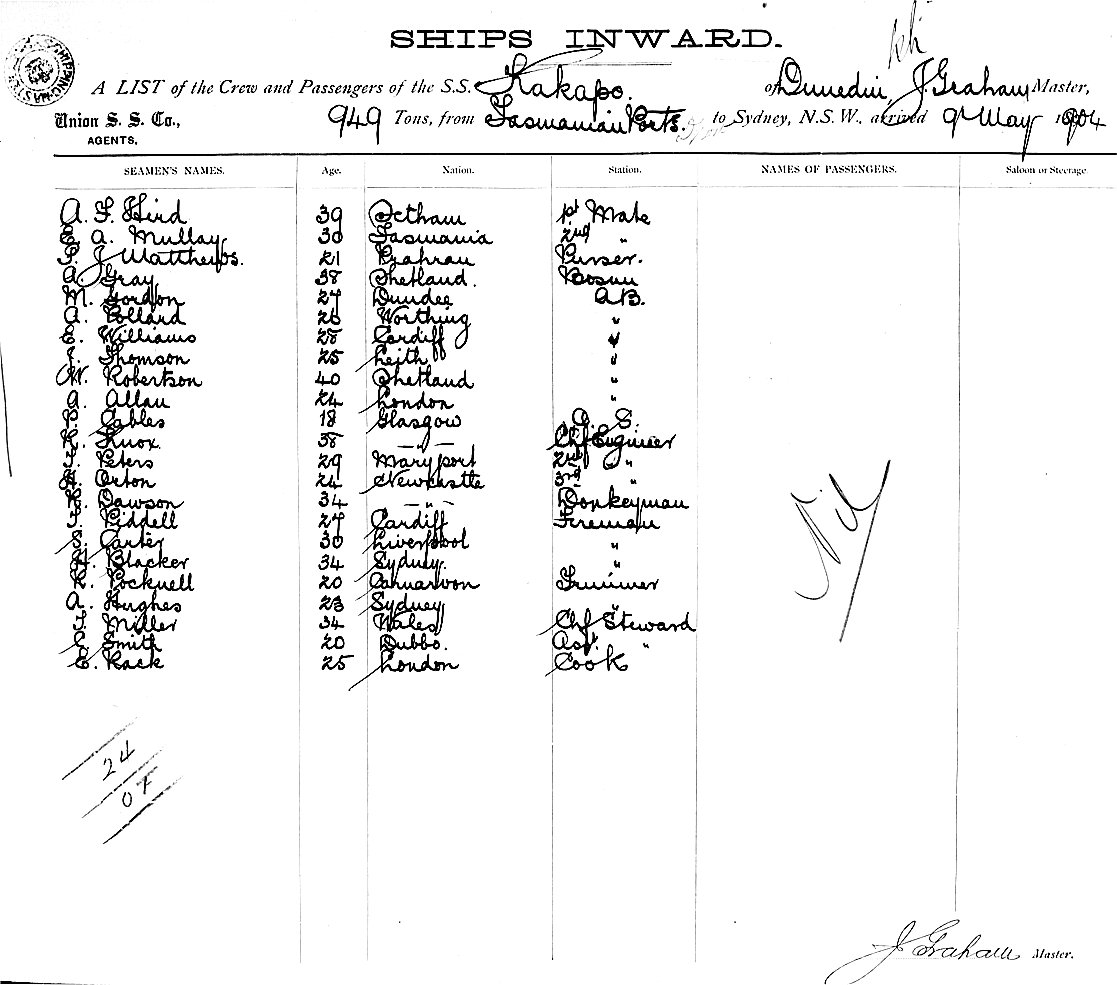 SHIPS INWARD.
A LIST of the Crew and Passengers of the S.S. Kakapo. of Dunedin, J Graham Master,
Union S. S. Co., 949 Tons, from Tasmanian Ports. to Sydney, N.S.W., arrived 9th May 1904
AGENTS,
SEAMEN'S NAMES. Age. Nation. Station. NAMES OF PASSENGERS. Saloon or Steerage
A. F. Hird 39 1st Mate
E. A. Mullay 30 Tasmania 2nd "
P. J Matthews. 21 Prahran Purser.
A. Gray 38 Shetland. Bosun
M. Gordon 27 Dundee A.B.
A. Pollard 26 Worthing "
E. Williams 28 Cardiff "
J. Thomson 25 Leith "
W. Robertson 40 Shetland "
A. Allan 24 London "
P. Cables 18 Glasgow O. S.
R. Knox 38 -"- Chf Engineer
T. Peters 29 Maryport 2nd "
H. Orton 24 Newcastle 3rd "
R. Dawson 34 -"- Donkeyman
T. Riddell 27 Cardiff Fireman
S. Carter 30 Liverpool "
H. Blacker 34 Sydney. "
R. Pocknell 20 Carnarvon Trimmer
A. Hughes 23 Sydney "
T. Miller 34 Wales Chf Steward
E. Smith 20 Dubbo. Ast. "
E. Rack 25 London Cook
Nil
24
J Graham Master.